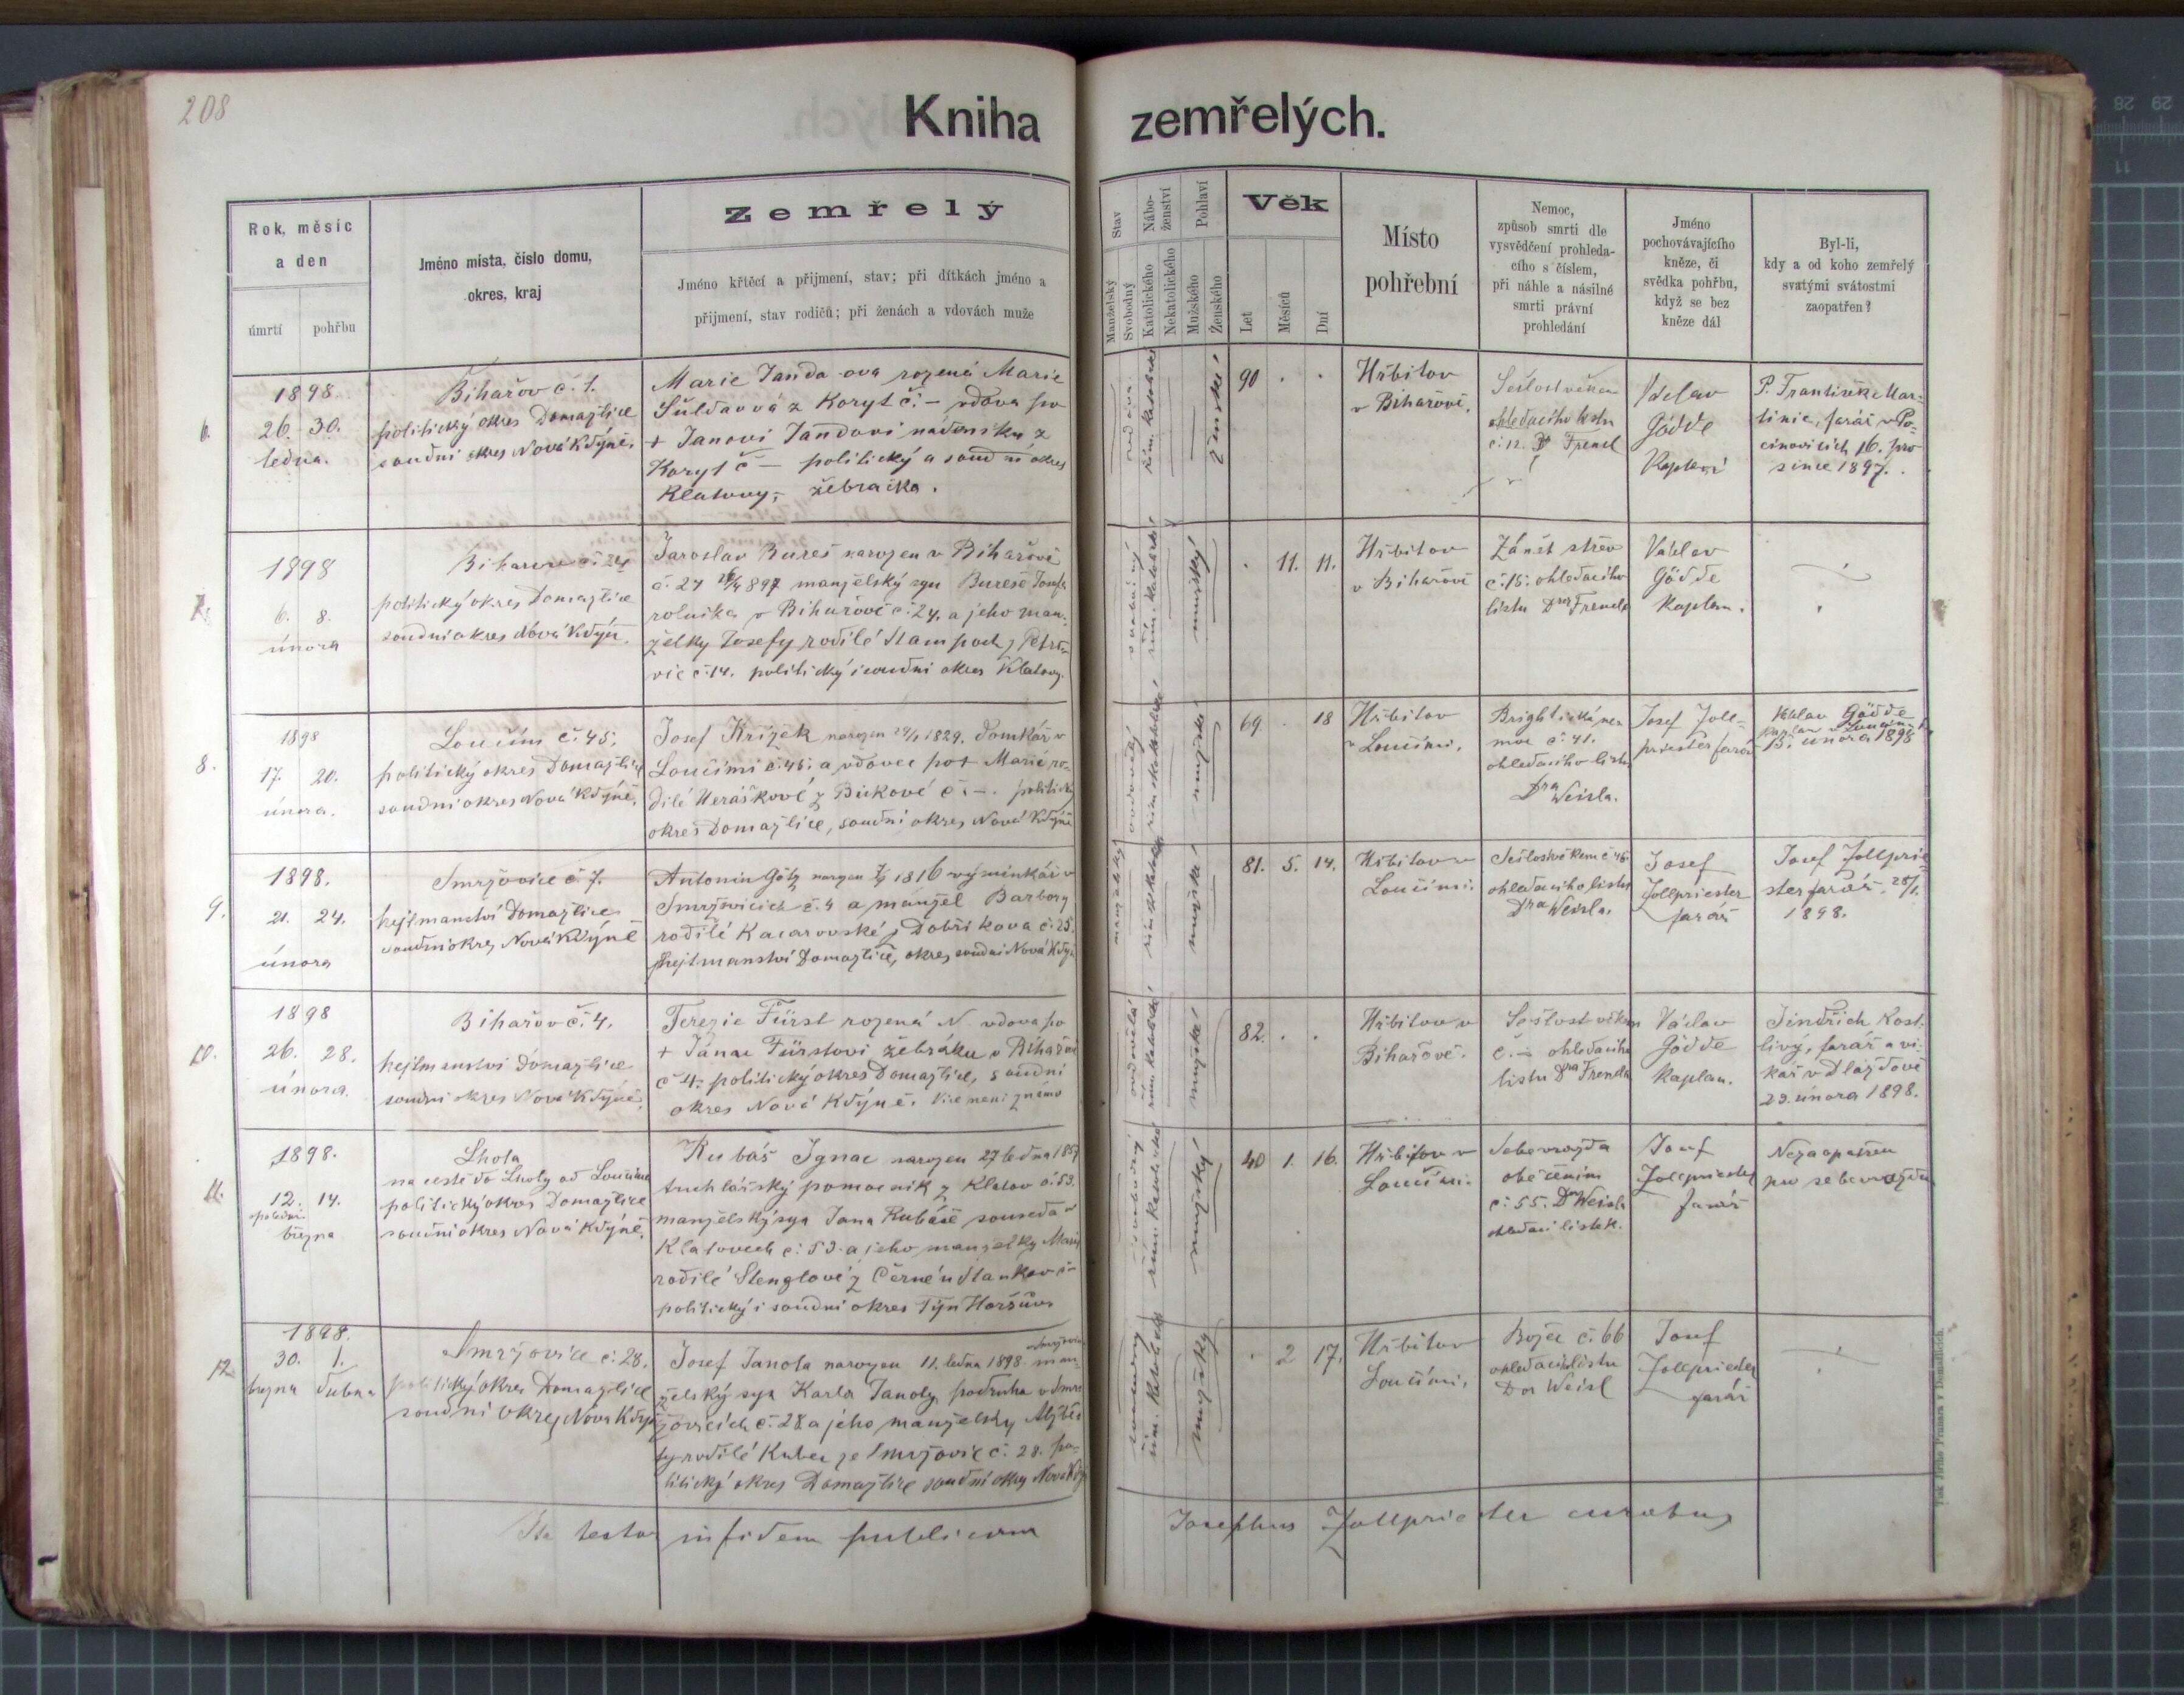 208
Kniha zemřelých.
Rok, měsíc
a den
úmrtí
pohřbu
Jméno místa, číslo domu,
okres, kraj
Zemřelý
Jméno křtěcí a přijmení, stav; při dítkách jméno a
přijmení, stav rodičů; při ženách a vdovách muže
Stav
Manželský
Svobodný
Nábo-
ženství
Katolického
Nekatolického
Pohlaví
Mužského
Ženského
Věk
Let
Měsíců
Dní
Místo
pohřební
Nemoc,
způsob smrti dle
vysvědčení prohleda-
cího s číslem,
při náhle a násilné
smrti právní
prohledání
Jméno
pochovávajícího
kněze, či
svědka pohřbu,
když se bez
kněze dál
Byl-li,
kdy a od koho zemřelý
svatými svátostmi
zaopatřen?
6.
1898.
26. 30.
ledna.
Bihařov č. 1.
politický okres Domažlice
soudní okres Nová Kdýně.
Marie Janda-ova rozená Marie
z Koryt č. – vdova po
+ Janovi Jandovi z
Koryt č – politický a soudní okres
Klatovy, žebračka.
90 . .
Hřbitov
v Bihařově.
ohledacího listu
č. 12. Dr Frencl
Gödde
Kaplan
P. Františka Mar-
tinic, farář v Po-
cinovicích 16. pro-
since 1897.
7.
1898
6. 8.
února
Bihařov č. 24
politický okres Domažlice
soudní okres Nová Kdýň.
Jaroslav Bureš narozen v Bihařově
č. 24 manželský syn Bureše Josefa
rolníka v Bihařově č. 24. a jeho man-
želky Josefy rodilé Stampach z Petro-
vic č. 14. politický i soudní okres Klatovy.
svobodný
řím. katolické
mužský
. 11. 11.
Hřbitov
v Bihařově
Zánět střev
č. 15. ohledacího
listu Dra Frencla
Václav
Gödde
Kaplan.
8.
1898
17. 20.
února.
Loučím č. 45.
politický okres Domažlice
soudní okres Nová Kdýně.
Josef Křížek narozen 1829. Domkář v
Loučími č. 45. a vdovec po + Marie ro-
dilé z Bukové č. –. politický
okres Domažlice, soudní okres Nová Kdýně
ovdovělý
69 . 18
Hřbitov
v Loučími.
Brightická nem
moc č. 41.
ohledacího listu
Dra Weisla.
Josef Zoll-
priester farář
Václav Gödde
15. února 1898
9.
1898.
21. 24.
února
Smržovice č. 7.
hejtmanství Domažlice
soudní okres Nová Kdýně
Antonín Götz narozen 1816 výminkář v
Smržovicích č. 4 a manžel Barbory
rodilé z Dobříkova č. 25.
hejtmanství Domažlice, okres soudní Nová Kdýň
manželský
81. 5. 14.
Hřbitov v
Loučími.
Sešlost věkem č. 46.
ohledacího listu
Dra Weisla.
Josef
Zollpriester
farář
Josef Zollprie-
ster farář
1898.
10.
1898
26. 28.
února.
Bihařov č. 4.
hejtmanství Domažlice
soudní okres Nová Kdýně.
Terezie Fürst rozená N. vdova po
+ Fürstovi žebráku v Bihařově
č. 4. politický okres Domažlice, soudní
okres Nová Kdýně. Více není známo
ovdovělá
82. . .
Hřbitov v
Bihařově.
Sešlost věkem
č. – ohledacího
listu Dra Frencla
Václav
Gödde
Kaplan.
Jindřich Kost-
livý, farář a vi-
kář v Dlažďově
23. února 1898.
11.
1898.
12. 14.
března
Lhota
na cestě do Lhoty od Loučíma
politický okres Domažlice
soudní okres Nová Kdýně.
Rubáš Ignac narozen 27 ledna 1857
pomocník z Klatov č. 53.
manželský syn Jana Rubáše souseda v
Klatovech č. 53. a jeho manželky Marie
rodilé Stenglové z Černé u Stankov č –
politický i soudní okres Týn Horšův
svobodný
řím. katolické
mužský
40 1. 16.
Hřbitov v
Loučími.
Sebevražda
oběšením
č. 55. Dra Weisla
ohledací lístek.
Josef
Zollpriester
farář
Nezaopatřen
pro sebevraždu
12.
1898.
30. 1.
března dubna
Smržovice č. 28.
politický okres Domažlice
soudní okres Nová Kdýně
Josef Janota narozen 11. ledna 1898 man-
želský syn Karla Janoty, podruha v Smr-
žovicích č. 28 a jeho manželky Alžbě-
ty rodilé Kubec ze Smržovic č. 28. po-
litický okres Domažlice soudní okres Nová Kdýň
mužský
. 2 17.
Hřbitov
Loučími.
č. 66
ohledací listu
Dra Weisl
Josef
Zollpriester
farář
Ita testor in fidem publicam Josephus Zollpriester curatus